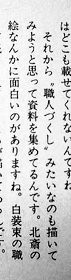 はどこも載せてくれないんですね
それから〝職人づくし〟みたいなのも描いて
みようと思って資料を集めてるんです。北斎の
絵なんかに面白いのがありますね。白装束の職